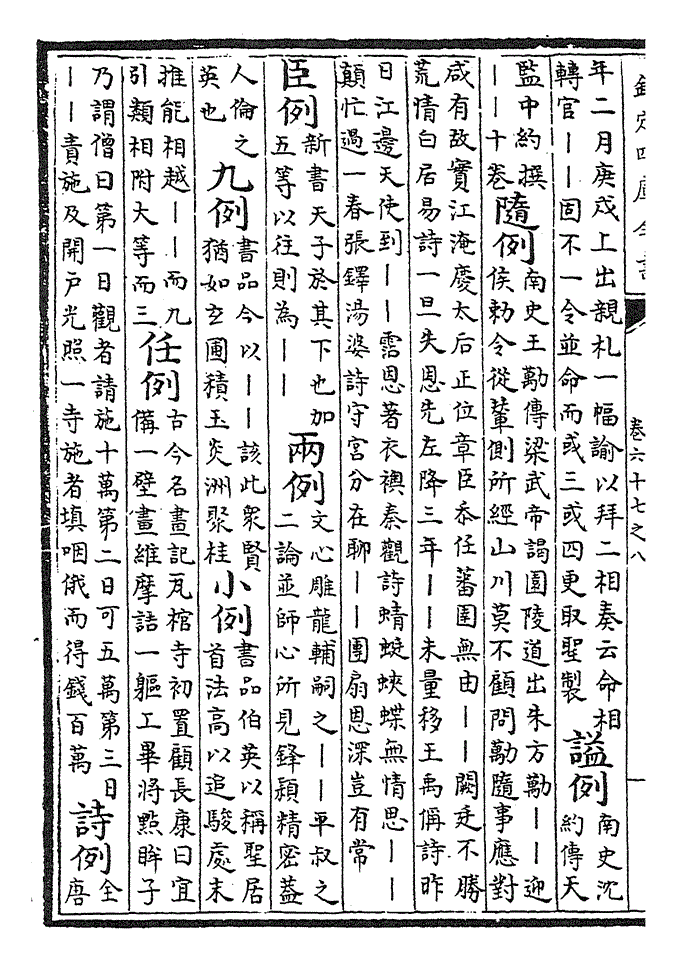 欽定四庫全書
卷六十七之八
年二月庚戌上出親札一幅諭以拜二相奏云命相
轉官丨丨固不一令並命而或三或四更取聖製
諡例
南史沈
約傳天
監中約撰
丨丨十卷
隨例
南史王勱傳梁武帝謁園陵道出朱方勱丨丨迎
侯勅令從輦側所經山川莫不顧問勱隨事應對
咸有故實江淹慶太后正位章臣忝任蕃圉無由丨丨闕廷不勝
荒情白居易詩一旦失恩先左降三年丨丨未量移王禹偁詩昨
日江邊天使到丨丨霑恩著衣襖秦觀詩蜻蜓蛺蝶無情思丨丨
顛忙過一春張鐸湯婆詩守宮分在聊丨丨團扇恩深豈有常
臣例
新書天子於其下也加
五等以往則為丨丨
兩例
文心雕龍輔嗣之丨丨平叔之
二論並師心所見鋒穎精密蓋
人倫之
英也
九例
書品今以丨丨該此衆賢
猶如玄圃積玉炎洲聚桂
小例
書品伯英以稱聖居
首法高以追駿處末
推能相越丨丨而九
引類相附大等而三
任例
古今名畫記瓦棺寺初置顧長康曰宜
備一壁畫維摩詰一軀工畢將點眸子
乃謂僧曰第一日觀者請施十萬第二日可五萬第三日
丨丨責施及開戶光照一寺施者填咽俄而得錢百萬
詩例
全
唐